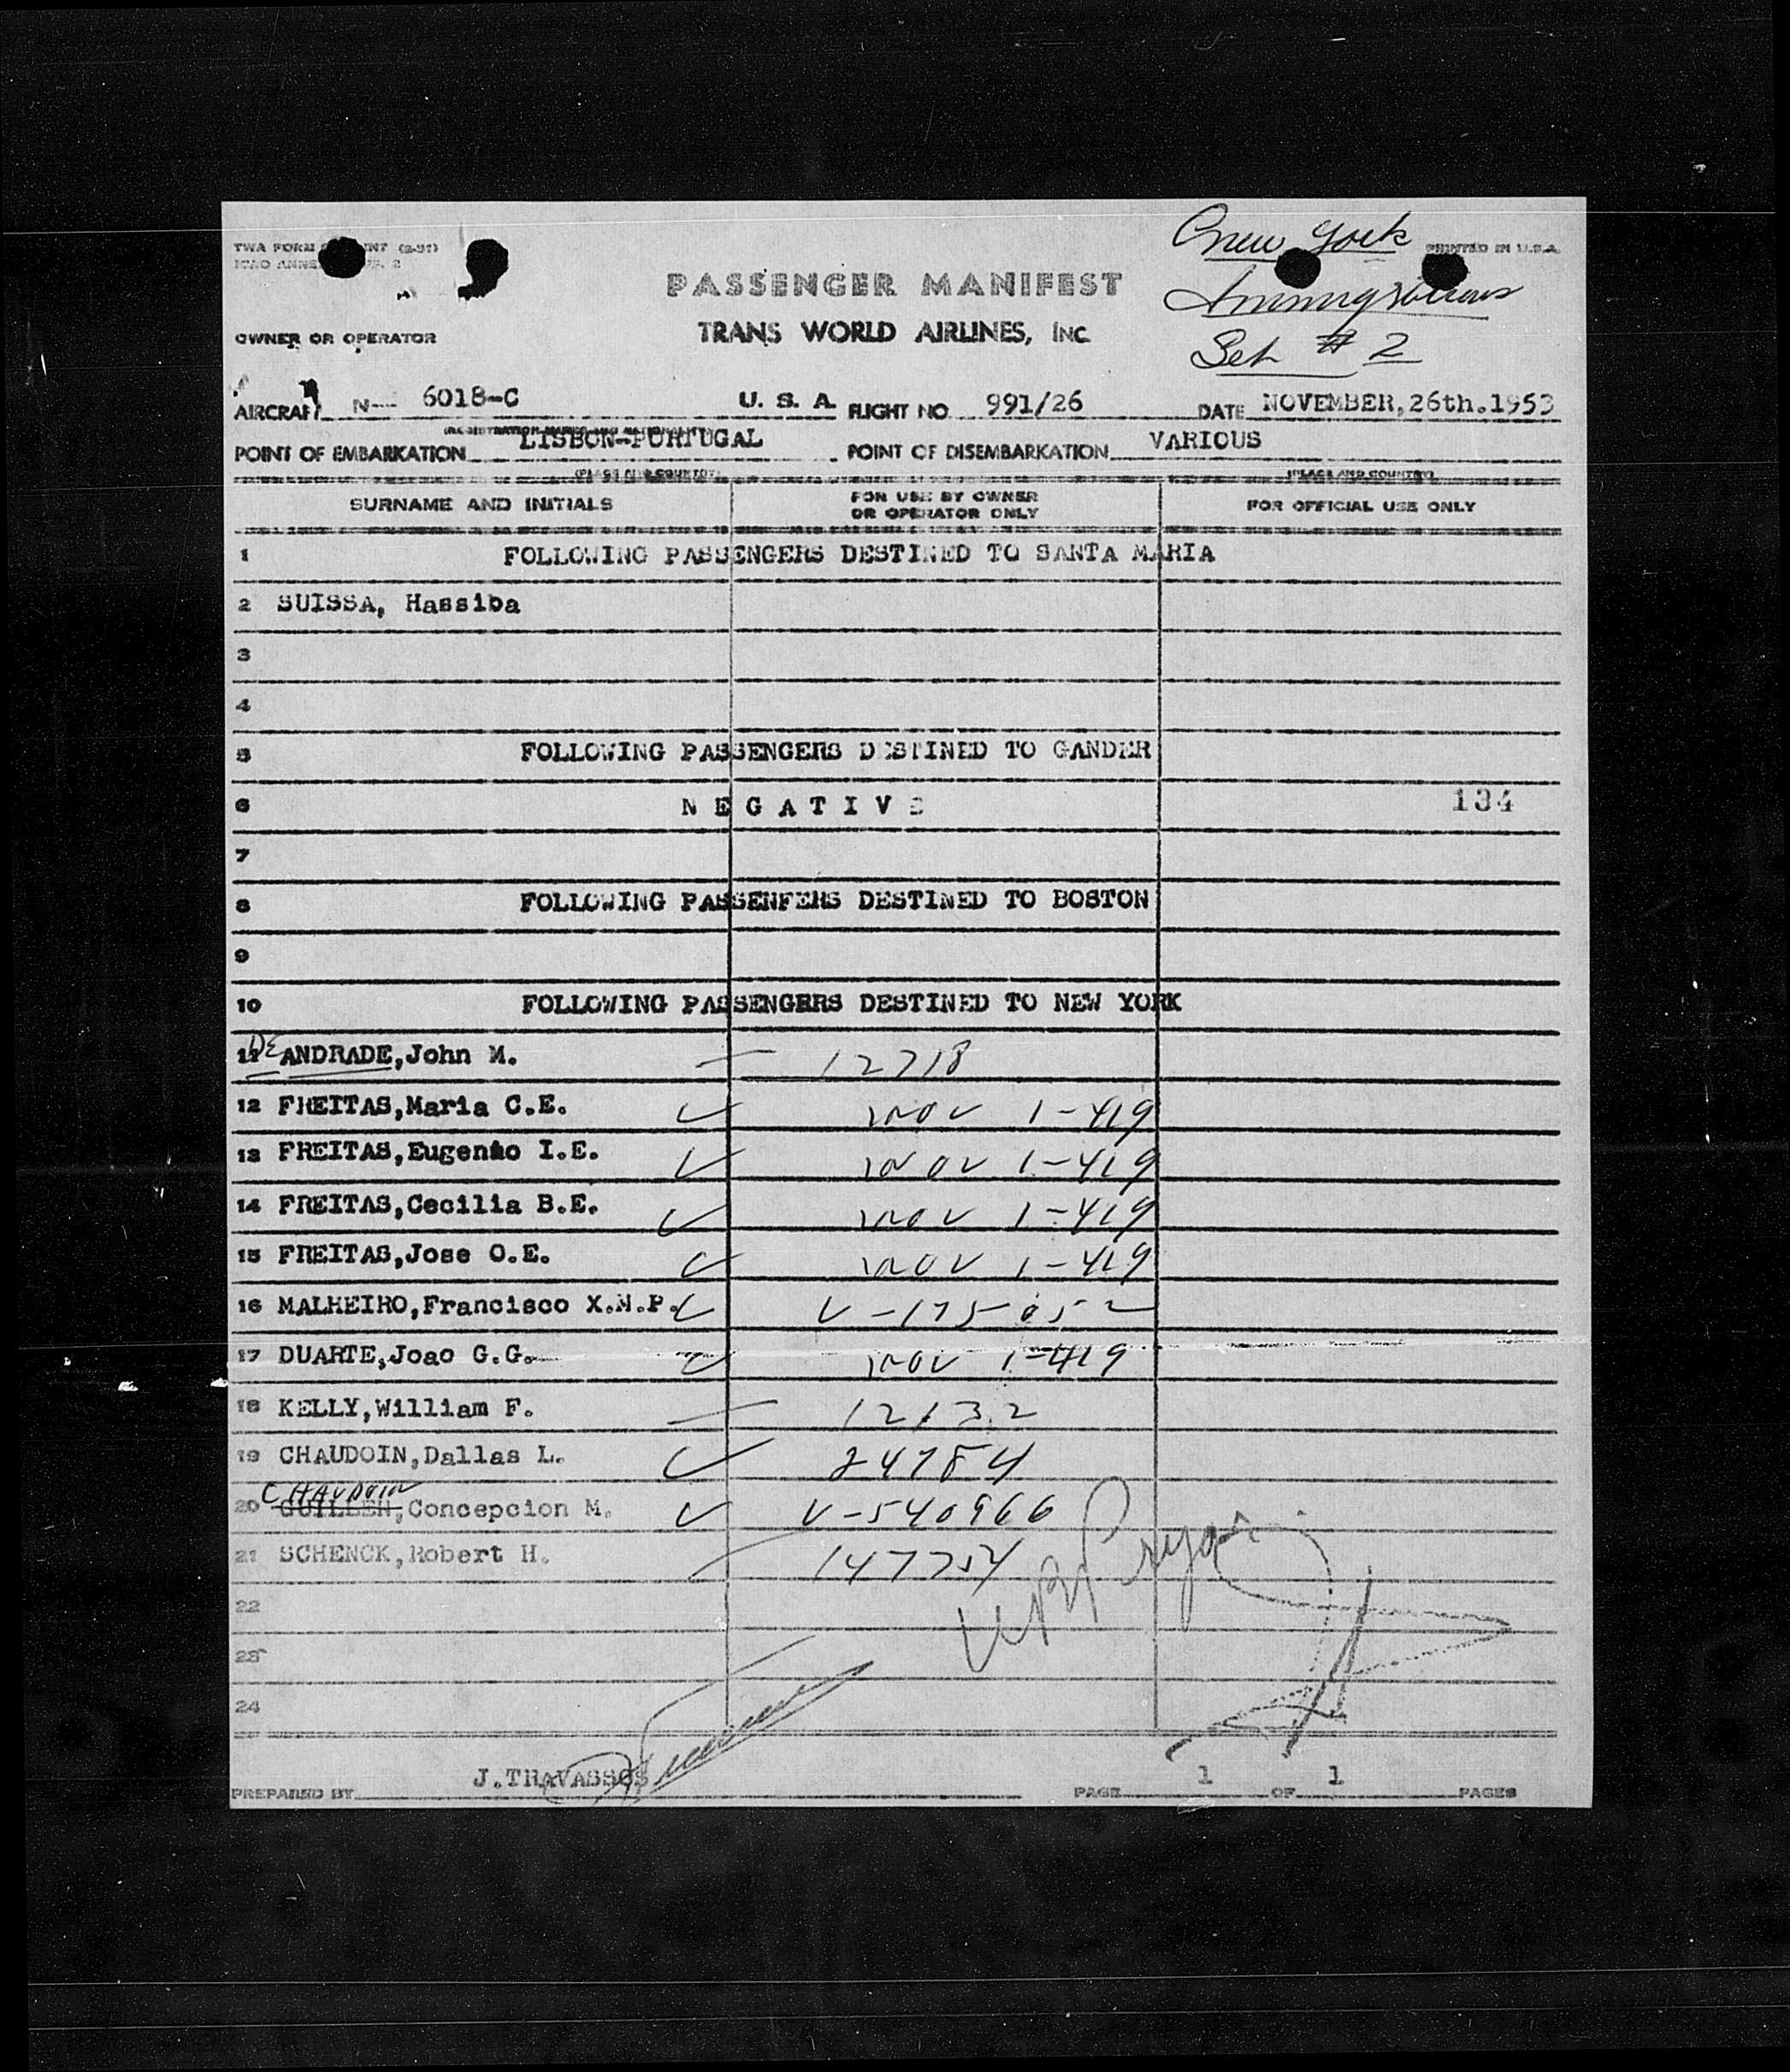 TWA FORM INT (2-51)
New York
PRINTED IN U.S.A.
ICAO ANNEX 2
PASSENGER MANIFEST
Immigrations
OWNER OR OPERATOR
TRANS WORLD AIRLINES, INC
Set # 2
AIRCRAFT N- 6018-C U. S. A. FLIGHT NO. 991/26 DATE NOVEMBER,26th.1953
(REGISTRATION MARKS AND NATIONALITY)
POINT OF EMBARKATION LISBON-PORTUGAL POINT OF DISEMBARKATION VARIOUS
(PLACE AND COUNTRY) (PLACE AND COUNTRY)
SURNAME AND INITIALS FOR USE BY OWNER OR OPERATOR ONLY FOR OFFICIAL USE ONLY
1 FOLLOWING PASSENGERS DESTINED TO SANTA MARIA
2 SUISSA, Hassiba
3
4
5 FOLLOWING PASSENGERS DESTINED TO GANDER
6 N E G A T I V E 134
7
8 FOLLOWING PASSENFERS DESTINED TO BOSTON
9
10 FOLLOWING PASSENGERS DESTINED TO NEW YORK
11 DE ANDRADE,John M. 12718
12 FREITAS,Maria C.E. nov 1-419
13 FREITAS,Eugenio I.E. nov 1-419
14 FREITAS,Cecilia B.E. nov 1-419
15 FREITAS,Jose O.E. nov 1-419
16 MALHEIRO,Francisco X.N.P. V-175052
17 DUARTE,Joao G.G. nov 1-419
18 KELLY,William F. 12132
19 CHAUDOIN,Dallas L. 24784
CHAUDOIN
20 GUILLEN,Concepcion M. V-540966
21 SCHENCK,Robert H. 147754
22
23
24
PREPARED BY J.TRAVASSOS PAGE 1 OF 1 PAGES